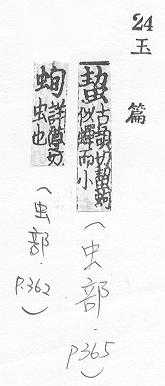 24
玉篇
切
似蟬而小
(虫部. P365)
詳遵切
虫也
(虫部. P.362)